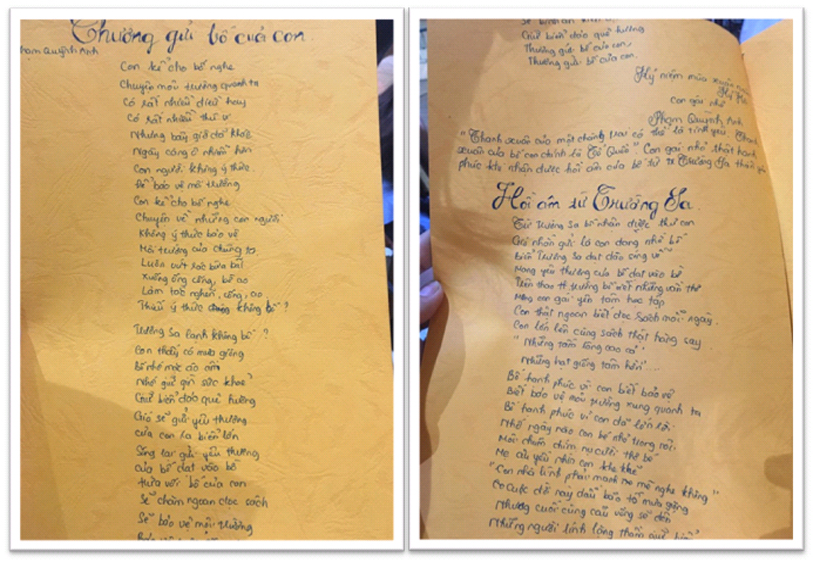 Thương gửi bố của con.
Phạm Quỳnh Anh
Con kể cho bố nghe
Chuyện môi trường quanh ta
Có rất nhiều điều hay
Có rất nhiều thú vị
Nhưng bây giờ đã khác
Ngày càng ô nhiễm hơn
Con người không ý thức
Để bảo vệ môi trường
Con kể cho bố nghe
Chuyện về những con người
Không ý thức bảo vệ
Môi trường của chúng ta
Luôn vứt rác bừa bãi
Xuống ống cống, bờ ao
Làm tắc nghẽn, cống, ao
Thiếu ý thức đúng không bố?
Trường Sa lạnh không bố?
Con thấy có mưa giông
Bố nhớ mặc áo ấm
Nhớ giữ gìn sức khoẻ
Giữ biển đảo quê hương
Gió sẽ gửi yêu thương
của con ra biển lớn
Sóng lại gửi yêu thương
của bố dạt vào bờ
Hứa với bố của con
Sẽ chăm ngoan đọc sách
Sẽ bảo vệ môi trường
Giữ biển đảo quê hương
Thương gửi bố của con,
Thương gửi bố của con.
Kỷ niệm mùa xuân
Con gái nhỏ
Phạm Quỳnh Anh
"Thanh xuân của một chàng trai có thể là tình yêu. Thanh
xuân của bố con chính là Tổ Quốc". Con gái nhỏ thật hạnh
phúc khi nhận được hồi âm của bố từ Trường Sa
Hồi âm từ Trường Sa.
Từ Trường Sa bố nhận được thư con
Gió nhắn gửi là con đang nhớ bố
Biển Trường Sa dạt dào sóng vỗ
Mang yêu thương của bố dạt vào bờ
Tiền thao trường bố viết những vần thơ
Mong con gái yên tâm học tập
Con thật ngoan biết đọc sách mỗi ngày.
Con lớn lên cùng sách thật hăng say
"Những tấm lòng cao cả"
Những hạt giống tâm hồn ...
Bố hạnh phúc vì con biết bảo vệ
Biết bảo vệ môi trường xung quanh ta
Bố hạnh phúc vì con đã lớn rồi
Nhớ ngày nào con bé nhỏ trong nôi
Môi chúm chím nụ cười thơ bé
Mẹ âu yếm nhìn con khe khẽ
"Con nhà lính phải mạnh mẽ nghe không"
Cuộc đời này dẫu bão tố mưa giông
Nhưng cuối cùng cầu vồng sẽ đến
Những người lính lặng thầm giữ biển